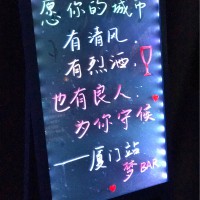 愿你的城市
有清风.
有烈酒.
也有良人.
为你守候
——厦门站
梦 BAR